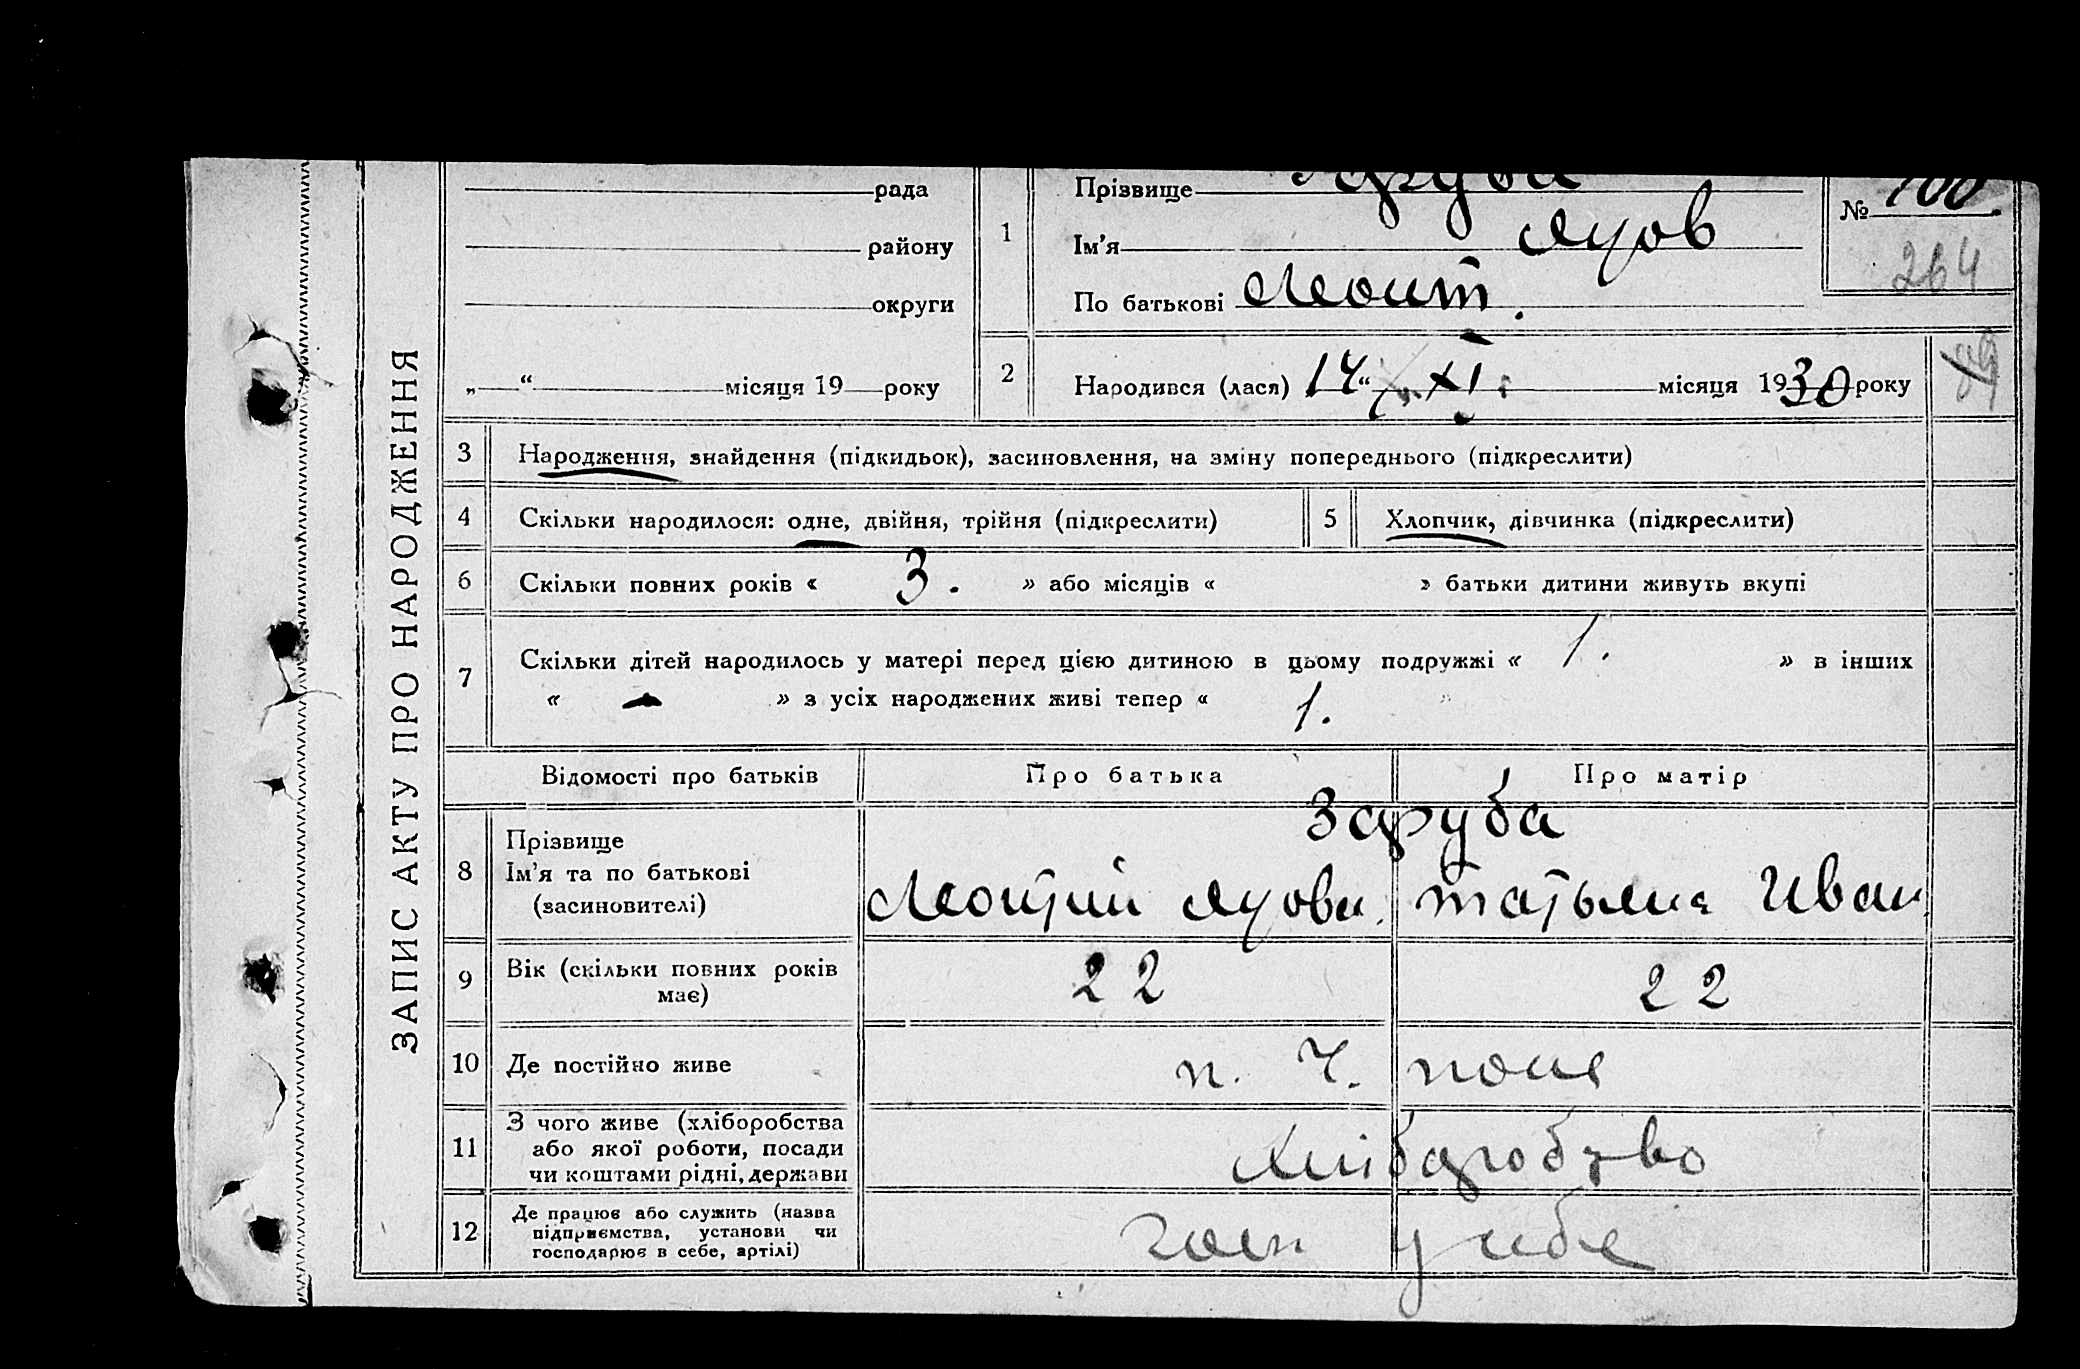 ЗАПИС АКТУ ПРО НАРОДЖЕННЯ
рада
району
округи
„ “ місяця 19 року
1
Прізвище
Ім’я
По батькові
№ 100.
264
2 Народився (лася) 14 “ XI. місяця 1930 року
3 Народження, знайдення (підкидьок), засиновлення, на зміну попереднього (підкреслити)
4 Скільки народилося: одне, двійня, трійня (підкреслити) 5 Хлопчик, дівчинка (підкреслити)
6 Скільки повних років « 3. » або місяців « » батьки дитини живуть вкупі
7 Скільки дітей народилось у матері перед цією дитиною в цьому подружжі « 1. » в інших
« - » з усіх народжених живі тепер « 1. »
Відомості про батьків Про батька Про матір
Заруба
8 Прізвище
Ім’я та по батькові
(засиновителі)
Татьяна Иван.
9 Вік (скільки повних років
має)
22 22
10 Де постійно живе
п. Ч.
11 З чого живе (хліборобства
або якої роботи, посади
чи коштами рідні, держави
хліборобство
12 Де працює або служить (назва
підприємства, установи чи
господарює в себе, артілі)
у себе